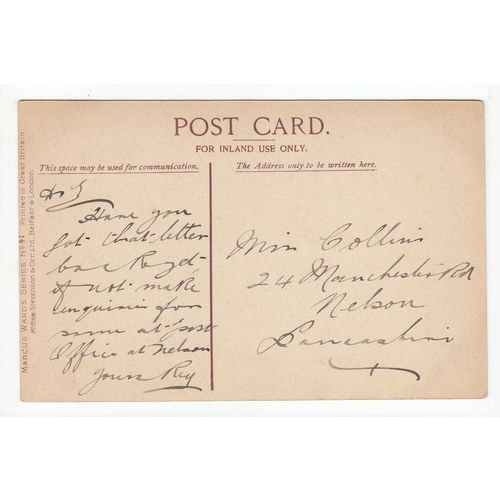 POST CARD.
FOR INLAND USE ONLY.
This space may be used for communication.
The Address only to be written here.
MARCUS WARD'S SERIES No 41 Printed in Great Britain
McCaw, Stevenson & Orr Ltd, Belfast & London.
Have you
got that letter
back yet
if not make
enquiries for
same at post
Office at Nelson
Yours Reg
Miss Collins
24 Manchester Rd
Nelson
Lancashire